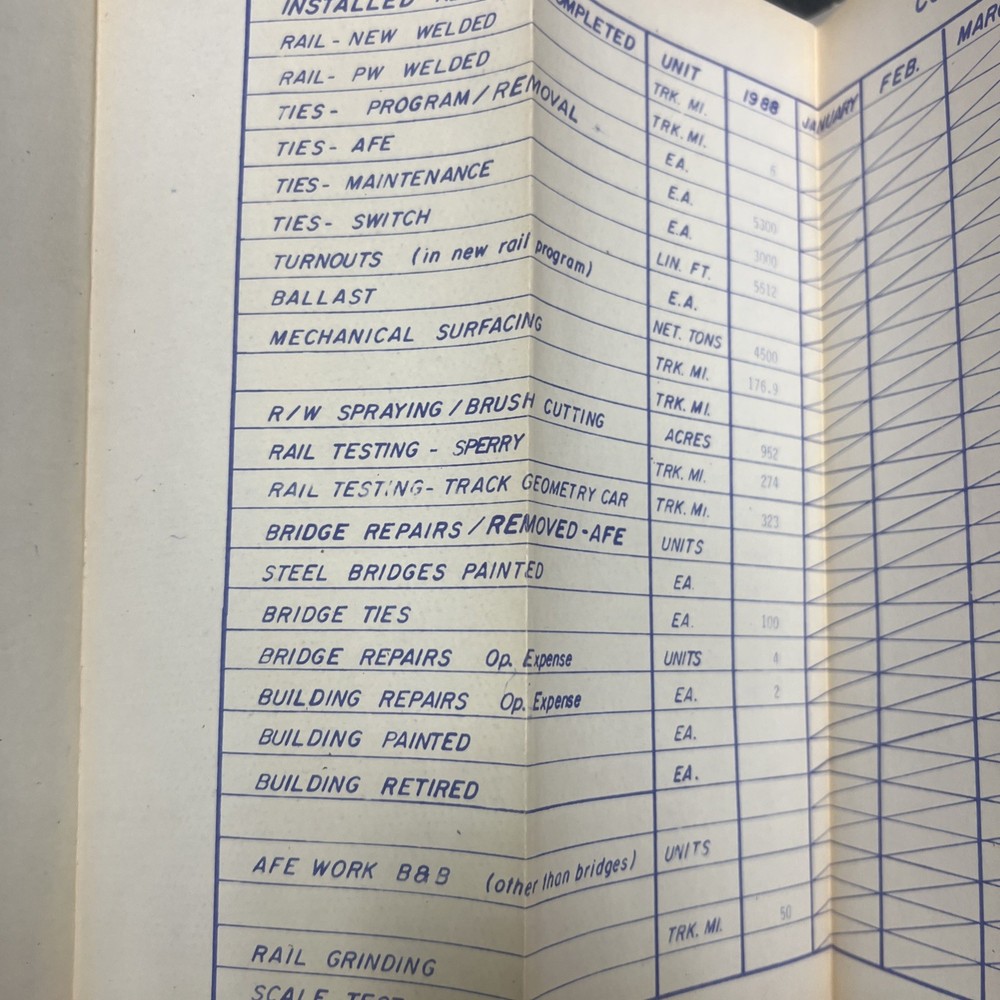 INSTALLED COMPLETED UNIT 1988 JANUARY FEB.
RAIL - NEW WELDED TRK. MI.
RAIL- PW WELDED TRK. MI. 6
TIES- PROGRAM/REMOVAL EA.
TIES- AFE E.A. 5300
TIES- MAINTENANCE E.A. 3000
TIES- SWITCH LIN. FT. 5512
TURNOUTS (in new rail program) E.A.
BALLAST NET. TONS 4500
MECHANICAL SURFACING TRK. MI. 176.9
TRK. MI.
R/W SPRAYING/BRUSH CUTTING ACRES 952
RAIL TESTING - SPERRY TRK. MI. 274
RAIL TESTING- TRACK GEOMETRY CAR TRK. MI. 323
BRIDGE REPAIRS/REMOVED-AFE UNITS
STEEL BRIDGES PAINTED EA.
BRIDGE TIES EA. 100
BRIDGE REPAIRS Op. Expense UNITS 4
BUILDING REPAIRS Op. Expense EA. 2
BUILDING PAINTED EA.
BUILDING RETIRED EA.
AFE WORK B&B (other than bridges) UNITS
RAIL GRINDING TRK. MI. 50
SCALE